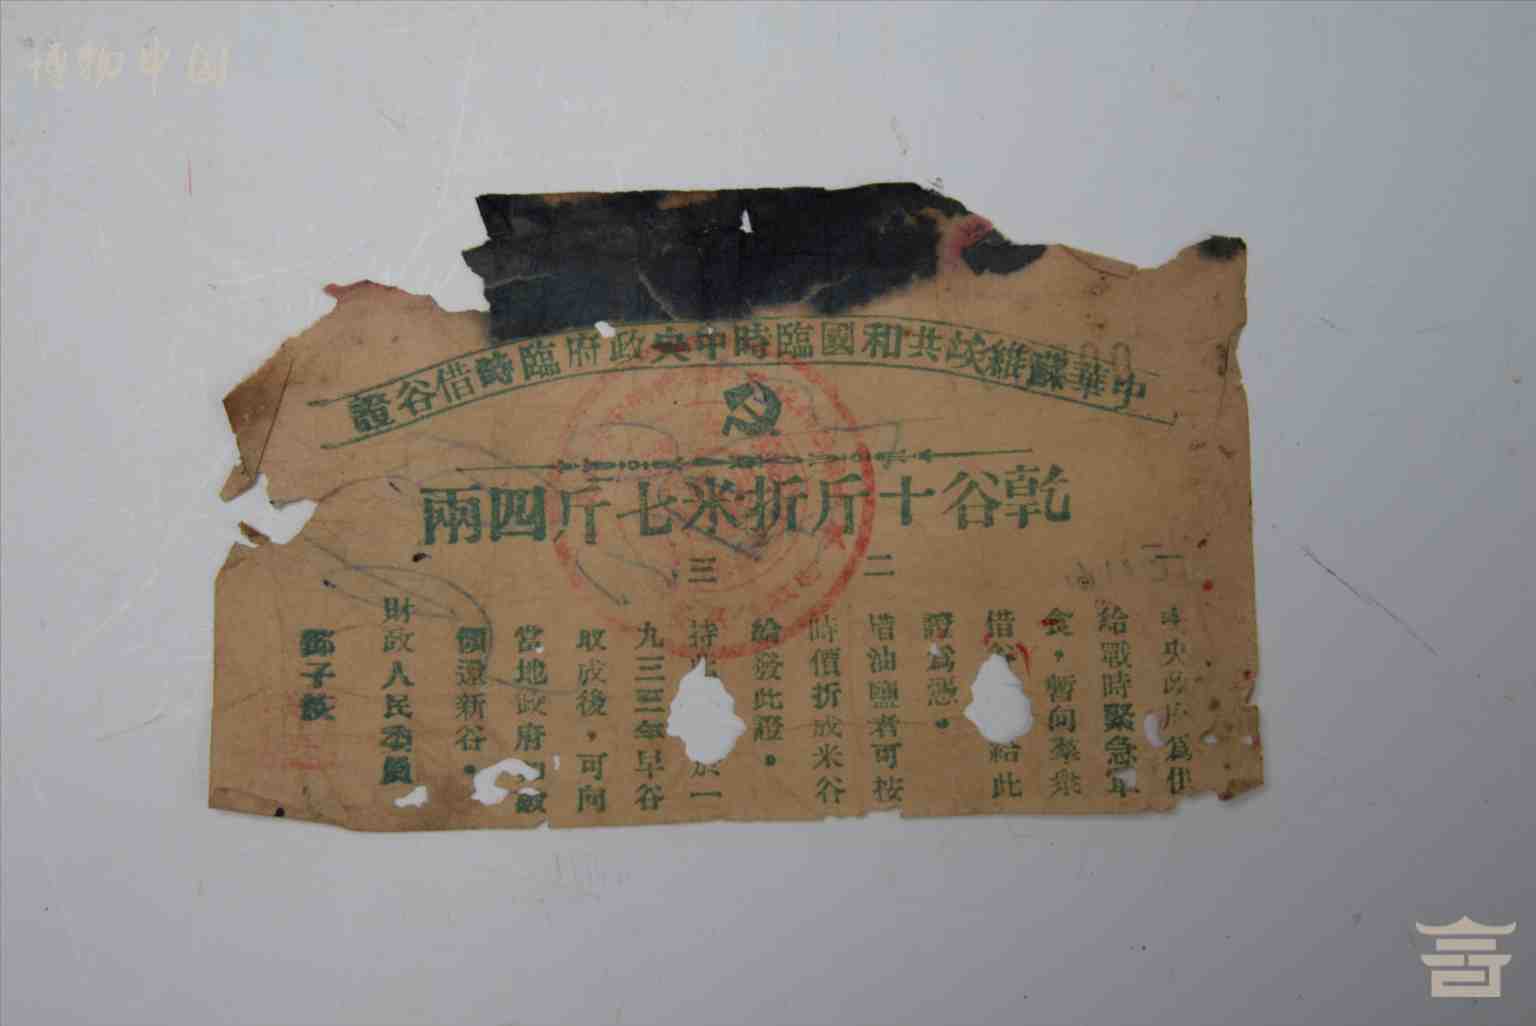 博物中国
中華蘇維埃共和國臨時中央政府臨時借谷證
乾谷十斤折米七斤四兩
一
中央政府爲供
給戰時緊急軍
食，暫向羣衆
借谷 給此
證爲憑。
二
借油鹽者可按
時價折成米谷
給發此證。
三
持此 於一
九三三年早谷
收成後，可向
當地政府
領還新谷。
財政人民委員
鄧子恢